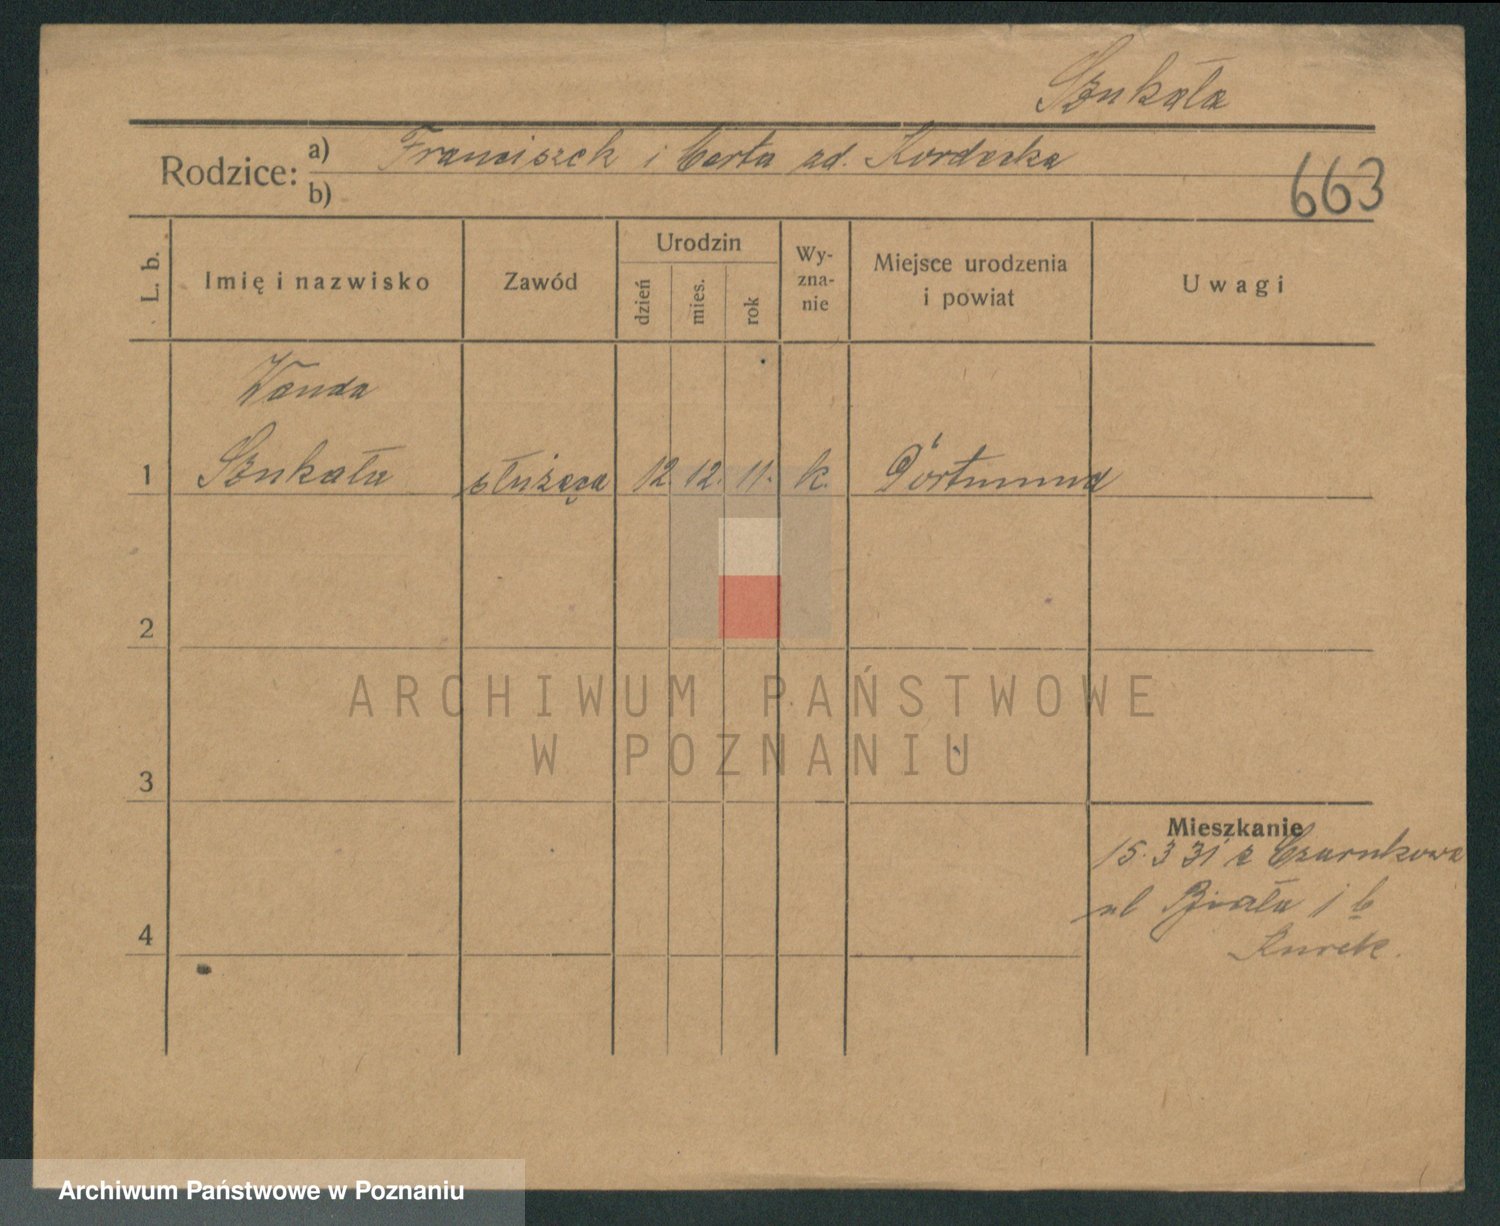 Szukała
Rodzice: a) Franciszek i Berta ad. Kordecka
b)
663
L. b. Imię i nazwisko Zawód Urodzin dzień mies. rok Wy-zna-nie Miejsce urodzenia i powiat Uwagi
Wanda
1 Szukała służąca 12. 12. 11. k. Dortmund
2
ARCHIWUM PAŃSTWOWE
W POZNANIU
3
Mieszkanie
15. 3 31 z Czarnkowa
ul Biała
4
Kurek.
Archiwum Państwowe w Poznaniu